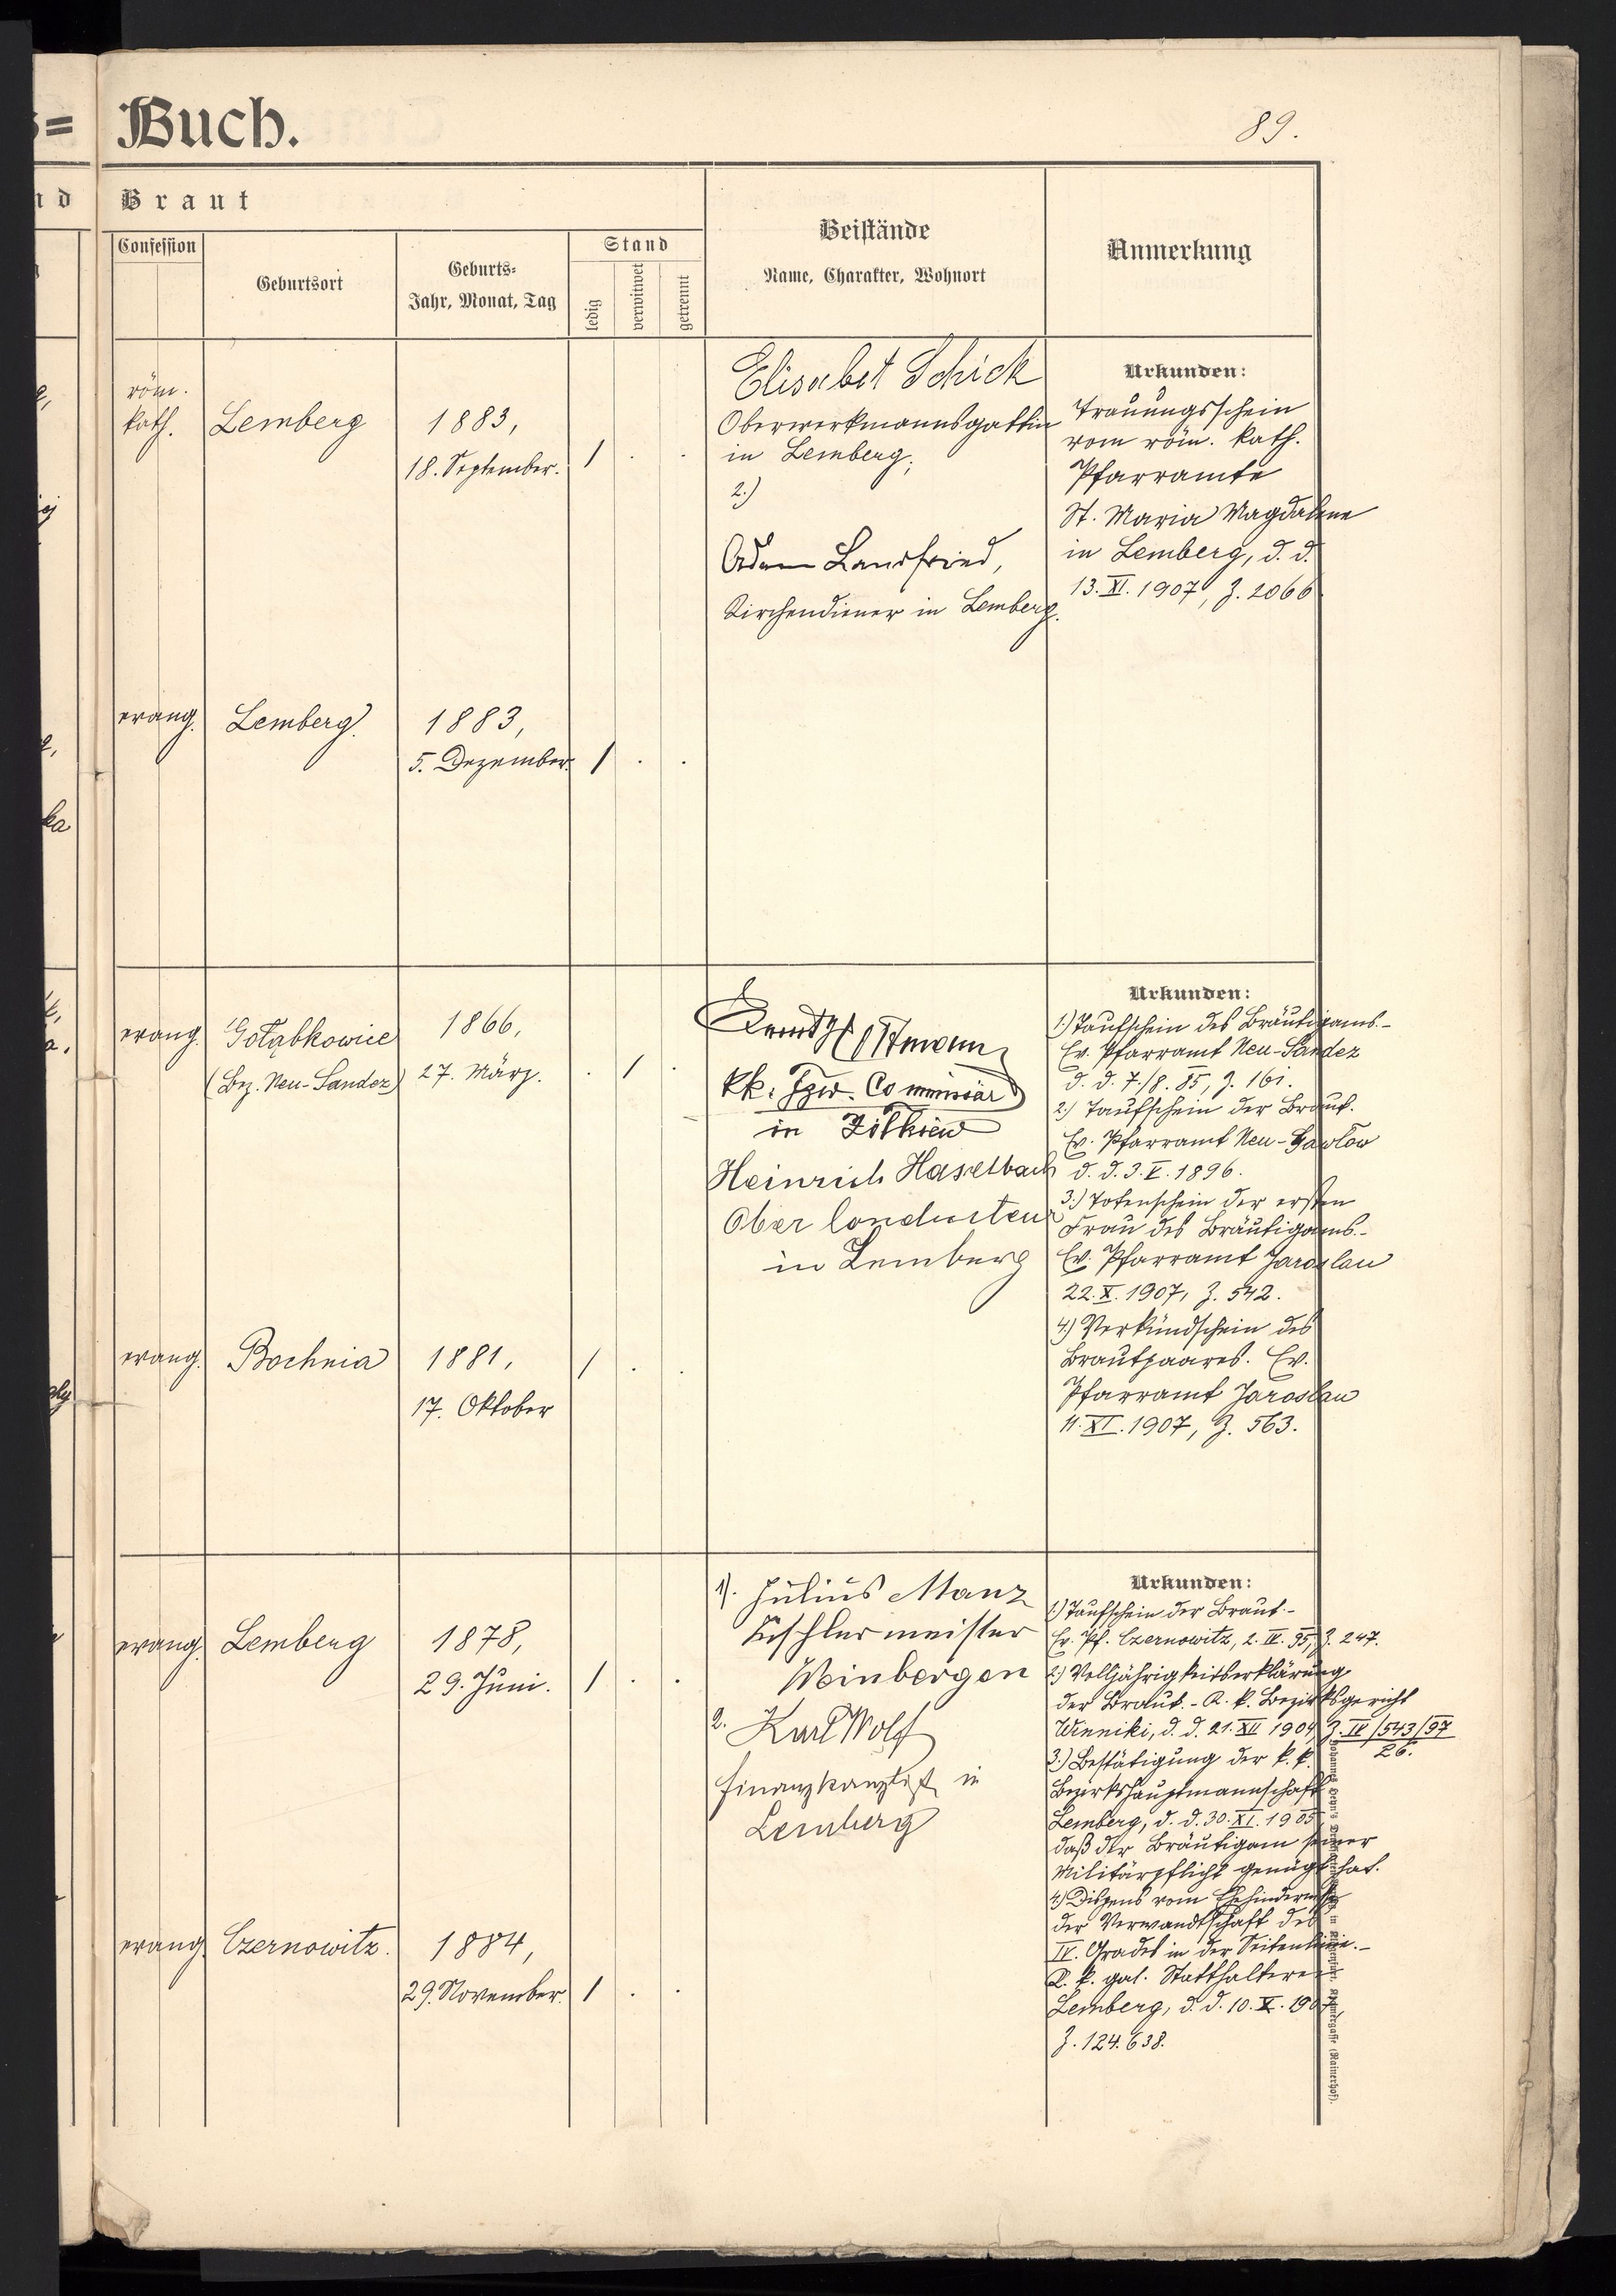 Buch.
89.
Braut
Confession
Geburtsort
Geburts=
Jahr, Monat, Tag
Stand
ledig
verwitwet
getrennt
Beistände
Name, Charakter, Wohnort
Anmerkung
röm.
kath.
Lemberg
1883,
18. September.
1 . .
Elisabet Schick
Oberwerkmannsgattin
in Lemberg;
2.)
Adam Landfried,
Kirchendiener in Lemberg.
Urkunden:
Trauungsschein
vom röm. kath.
Pfarramte
St. Maria Magdalene
in Lemberg, d. d.
13. XI. 1907, Z. 2066
evang.
Lemberg.
1883,
5. Dezember.
1 . .
evang.
Gołąbkowice
(Bez. Neu-Sandez)
1866,
27. März.
. 1 .
kk. Fzw. Commissär
in Żółkiew
Heinrich Haselbach
Ober Conducteur
in Lemberg
Urkunden:
1.) Taufschein des Bräutigams.-
Ev. Pfarramt Neu-Sandez
d. d. 7./8. 85, Z. 161.
2.) Taufschein der Braut.
Ev. Pfarramt Neu-Gawlow
d. d. 3. V. 1896.
3.) Totenschein der ersten
Frau des Bräutigams.-
Ev. Pfarramt Jaroslau
22. X. 1907, Z. 542.
4.) Verkündschein des
Brautpaares. Ev.
Pfarramt Jaroslau
11. XI. 1907, Z. 563.
evang.
Bochnia
1881,
17. Oktober
1 . .
evang.
Lemberg
1878,
29. Juni.
1 . .
1). Julius Manz
Tischlermeister
Weinbergen
2. Karl Wolf
Finanzkanzlist in
Lemberg
Urkunden:
1.) Taufschein der Braut.-
Ev. Pf. Czernowitz, 2. IV. 95, Z. 247.
2.) Volljährigkeitserklärung
der Braut.- K. k. Bezirksgericht
Winniki, d. d. 21. XII 1904, Z. IV/543/97
26.
3.) Bestätigung der k. k.
Bezirkshauptmannschaft
Lemberg, d. d. 30. XI. 1905,
daß der Bräutigam seiner
Militärpflicht genügt hat.
4.) Dispens vom Ehehindernisse
der Verwandtschaft des
IV. Grades in der Seitenlinie.-
K. k. gal. Statthalterei
Lemberg, d. d. 10. X. 1907,
Z. 124.638.
evang.
Czernowitz.
1884,
29. November.
1 . .